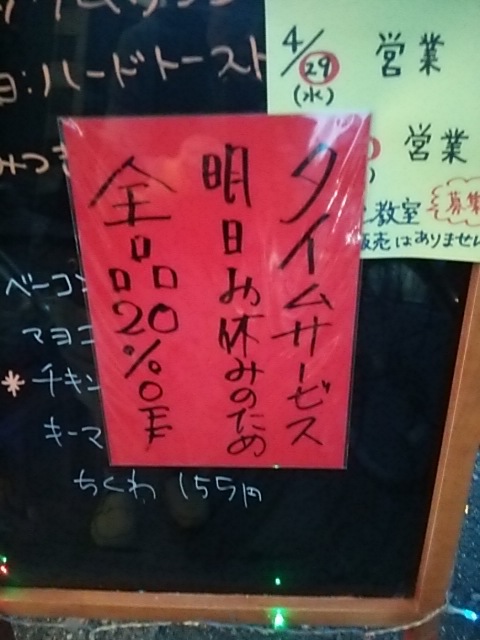 ハードトースト
4/29
(水)
営業
営業
教室
募集
販売はありません
タイムサービス
明日お休みのため
全品20%OFF
ベーコン
マヨコ
*チキン
キーマ
ちくわ 155円